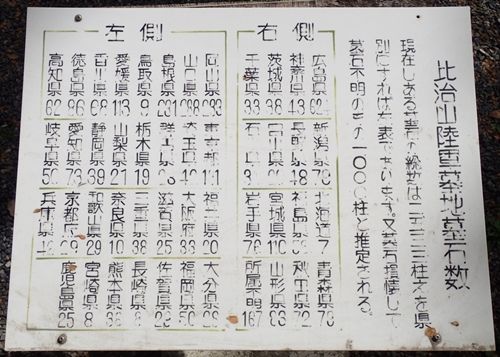 比治山陸軍墓地墓石数
現在しある墓碑の総数は
柱で之を県
別にすれば左表であります。又墓石損壊して
墓石不明のもの一〇〇〇柱と推定される。
右側
広島県
神奈川県 43
茨城県 38
千葉県 33
新潟県 78
長野県 18
石川県
北海道 7
福島県
宮城県 110
岩手県 78
青森県 73
秋田県 72
山形県 83
所属不明 167
左側
岡山県 293
山口県
島根県 231
鳥取県 9
愛媛県 113
香川県 68
徳島県 96
高知県 62
東京都 111
埼玉県 16
群馬県
栃木県 19
山梨県 21
静岡県 39
愛知県 73
岐阜県 50
福井県 20
大阪府 33
滋賀県 25
三重県 38
奈良県 10
和歌山県 29
京都府
兵庫県
大分県 29
福岡県 50
佐賀県
長崎県 8
熊本県
宮崎県 8
鹿児島県 25